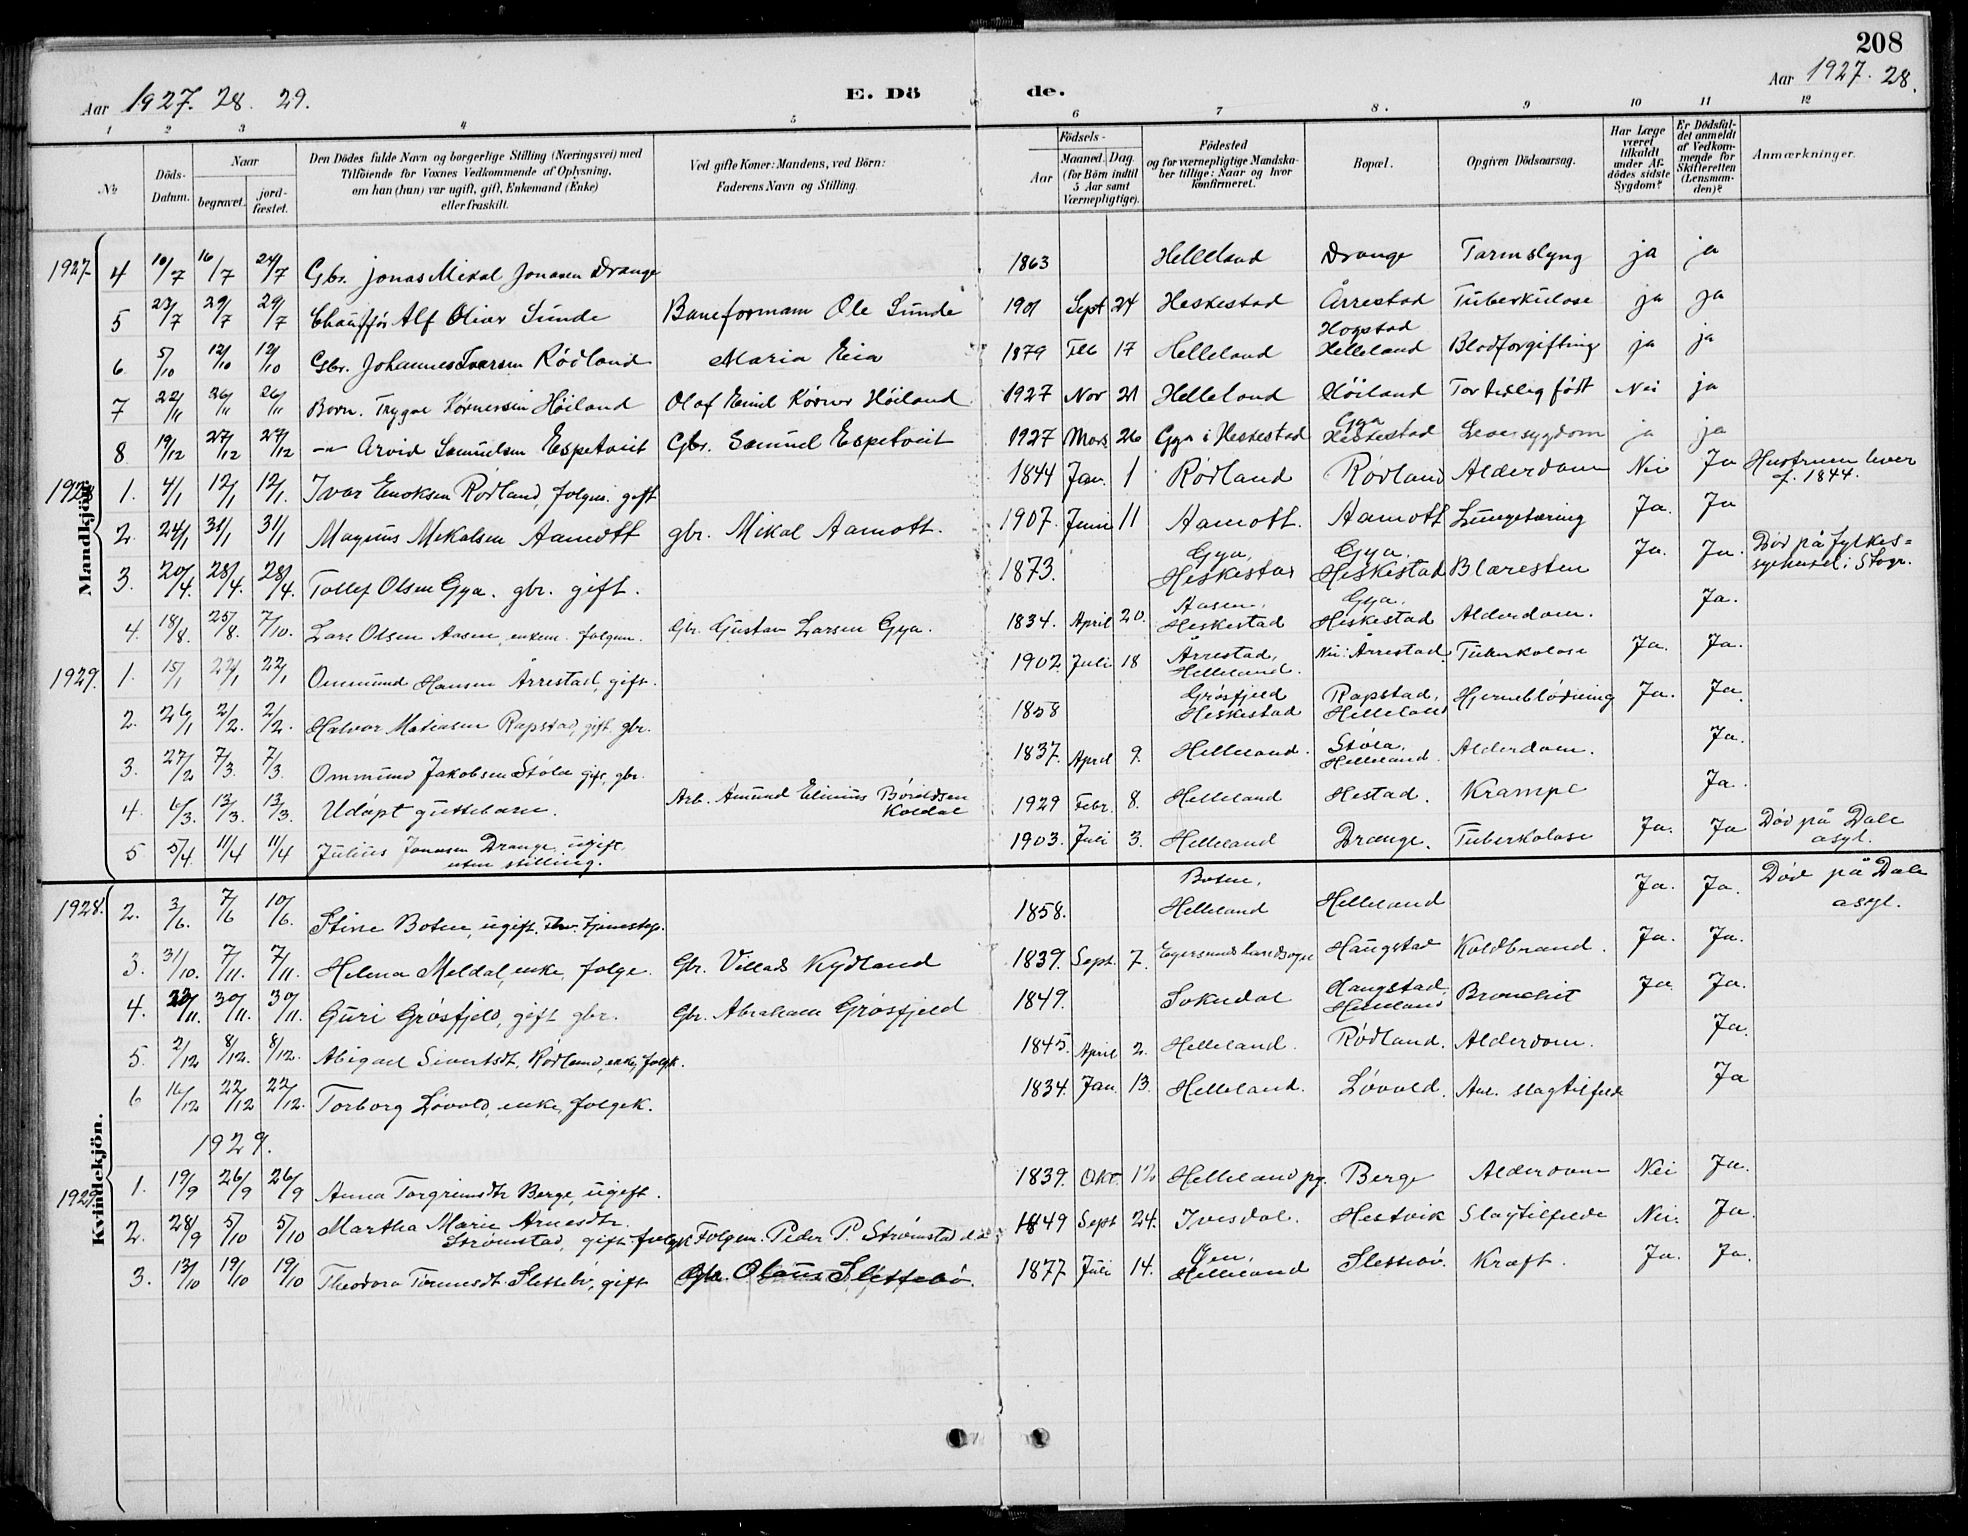 208
Aar 1927. 28. 29.
E. Dö de.
Aar 1927. 28.
1 2 3 4 5 6 7 8. 9 10 11 12
№ Döds-Datum. Naar begravet. jordfæstet. Den Dödes fulde Navn og borgerlige Stilling (Næringsvei) med Tilföiende for Voxnes Vedkommende af Oplysning, om han (hun) var ugift, gift, Enkemand (Enke) eller fraskilt. Ved gifte Koner: Mandens, ved Börn: Faderens Navn og Stilling. Födsels- Aar Maaned. Dag. (for Börn indtil 5 Aar samt Værnepligtige). Födested og for værnepligtige Mandskaber tillige: Naar og hvor konfirmeret. Bopæl. Opgiven Dödsaarsag. Har Læge været tilkaldt under Afdödes sidste Sygdom? Er Dödsfaldet anmeldt af Vedkommende for Skifteretten (Lensmanden)? Anmærkninger.
Mandkjön.
1927 4 10/7 16/7 24/7 Gbr. Jonas Mikal Jonasen Drange 1863 Helleland Drange Tarmslyng ja ja
5 23/7 29/7 29/7 Chauffør Alf Oliar Sunde Baneformann Ole Sunde 1901 Sept 24 Heskestad Årrestad Tuberkulose ja ja
6 5/10 12/10 12/10 Gbr. Johannes Ivarsen Rødland Maria Eia 1879 Feb 17 Helleland Hogstad Helleland Blodforgiftning ja ja
7 22/11 26/11 26/11 Barn. Trygve Kørnersen Høiland Olaf Emil Kørner Høiland 1927 Nov 21 Helleland Høiland For tidlig født Nei ja
8 19/12 27/12 27/12 -"- Arvid Samuelsen Espetveit Gbr. Samuel Espetveit 1927 Mars 26 Gya i Heskestad Gya Heskestad Leversygdom ja ja
1928 1. 4/1 12/1 12/1. Ivar Enoksen Rødland, folgm. gift 1844 Jan. 1 Rødland Rødland Alderdom Nei Ja Hustruen lever f. 1844.
2. 24/1 31/1 31/1 Magnus Mikalsen Aamott gbr. Mikal Aamott. 1907. Juni 11 Aamott. Aamott Lungetæring Ja. Ja
3. 20/4. 28/4. 28/4. Tollef Olsen Gya. gbr. gift. 1873. Gya, Heskestad Gya. Heskestad Blæresten Ja. Ja. Død på fylkes=sykehuset i Stvgr.
4. 18/8. 25/8. 7/10. Lars Olsen Aasen, enkem. folgm. Gbr. Gustav Larsen Gya. 1834. April 20. Aasen, Heskestad Gya, Heskestad Alderdom. Ja.
1929. 1. 15/1 22/1 22/1 Ommund Hansen Årrestad, gift. 1902 Juli 18 Årrestad, Helleland. Årrestad. Tuberkolose Ja. Ja.
2. 26/1 2/2. 2/2. Halvor Matiasen Rapstad, gift gbr. 1858 Grøsfjeld Heskestad Rapstad, Helleland Hjerneblødning Ja. Ja.
3. 27/2 7/3. 7/3. Ommund Jakobsen Støla gift, gbr. 1837. April 9. Helleland. Støla, Helleland. Alderdom. Ja.
4. 6/3. 13/3. 13/3. Udøpt guttebarn. Arb. Amund Elinius Børaldsen Koldal 1929 Febr. 8. Helleland Hestad. Krampe Ja.
5 5/4. 11/4 11/4 Julius Jonasen Drange, ugift. uten stilling. 1903. Juli 3. Helleland Drange. Tuberkolose Ja. Ja Død på Dale asyl.
Kvindekjön.
1928. 2. 3/6. 7/6 10/6. Stine Botne, ugift. Fhv. tjenestep. 1858. Botne, Helleland Helleland Ja. Ja. Død på Dale asyl.
3. 31/10. 7/11. 7/11. Helena Meldal, enke, folge. Gbr. Villads Kydland 1839. Sept. 7. Egersunds landsogn Haugstad Koldbrand. Ja. Ja.
4. 23/11. 30/11. 30/11. Guri Grøsfjeld, gift gbr. Gbr. Abraham Grøsfjeld 1849. Sokndal Haugstad, Helleland Bronchit Ja Ja.
5. 2/12 8/12. 8/12. Abigael Sivertsdt. Rødland, enke, folgk. 1845. April 2. Helleland. Rødland. Alderdom. Ja.
6 16/12 22/12 22/12. Torborg Løvold, enke, folgek. 1834. Jan. 13. Helleland. Løvold. An. slagtilfelde Ja
1929.
1929 1. 19/9 26/9 26/9 Anna Torgrimsdtr. Berge, ugift. 1839. Okt. 12 Helleland pg. Berge Alderdom Nei Ja.
2. 28/9 5/10 5/10 Martha Marie Arnesdtr. Strømstad, gift. folgk Folgm. Peder P. Strømstad 1849 Sept 24. Ivesdal. Hestvik Slagtilfelde Nei. Ja.
3. 13/10 19/10 19/10 Theodora Tønnesdt. Slettebø, gift Gbr. Olaus Slettebø. 1877 Juli 14. Helleland Slettebø. Kræft. Ja. Ja.